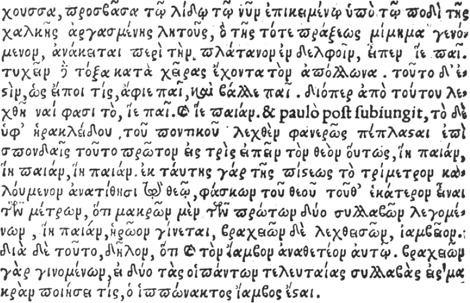 χουσσα, προσβᾶσα τῷ λίθῳ τῷ νῦν ἐπικειμένῳ ὑπὸ τῷ ποδὶ τῆς
χαλκῆς ἀργασμένης λητοῦς, ὃ τῆς τότε πράξεως μίμημα γενό-
μενον, ἀνάκειται περὶ τὴν πλάτανον ἐν δελφοῖν, εἶπεν ἵε παῖ.
τυχεῖν δὲ τόξα κατὰ χεῖρας ἔχοντα τὸν ἀπόλλωνα. τοῦτο δ' ἐ-
σὶν, ὡς εἴποι τὶς, ἄφιε παῖ, καὶ βάλλε παῖ. διόπερ ἀπὸ τούτου λε-
χθῆναί φασι τὸ, ἵε παῖ. & ἵε παιάν. & paulò post subiungit, τὸ δὲ
ὑφ' ἡρακλείδου τοῦ ποντικοῦ λεχθὲν φανερῶς πέπλασαι ἐπὶ
σπονδαῖς τοῦτο πρῶτον εἰς τρὶς εἰπεῖν τὸν θεὸν οὕτως, ἵη παιάν,
ἵη παιάν, ἵη παιάν. ἐκ ταύτης γὰρ τῆς πίσεως τὸ τρίμετρον κα-
λούμενον ἀνατίθησι τῷ θεῷ, φάσκων τοῦ θεοῦ τοῦθ' ἑκάτερον εἶναι
τῶν μέτρων, ὅτι μακρῶν μὲν τῶν πρώτων δύο συλλαβῶν λεγομέ-
νων, ἵη παιάν, ἡρῷον γίνεται, βραχειῶν δὲ λεχθεισῶν, ἰαμβεῖον.
διὰ δὲ τοῦτο, δῆλον, ὅτι & τὸν ἴαμβον ἀναθετέον αὐτῷ. βραχειῶν
γὰρ γινομένων, εἰ δύο τὰς οἱπάντων τελευταίας συλλαβὰς εἰς μα-
κρὰν ποιήσει τίς, ὁ ἱππώνακτος ἴαμβος ἔσαι.